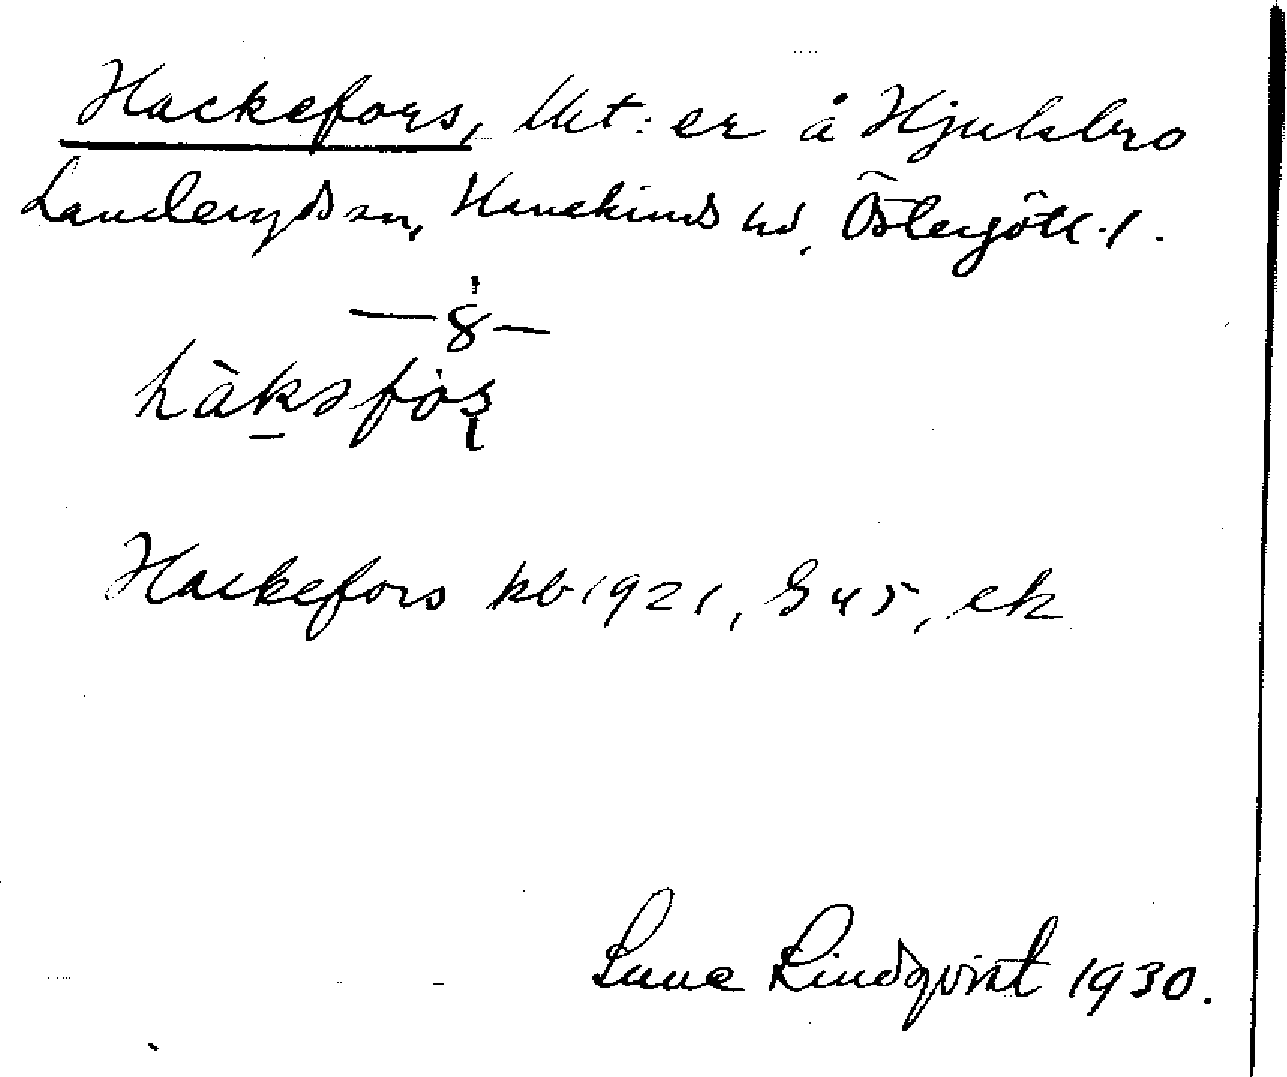 Hackefors, lht:er å Hjulsbro
Landeryds sn, Hanekinds hd, Östergötl. l.
—8—
hàksfòs
Hackefors kb 1921, S 45, ek
Sune Lindqvist 1930.